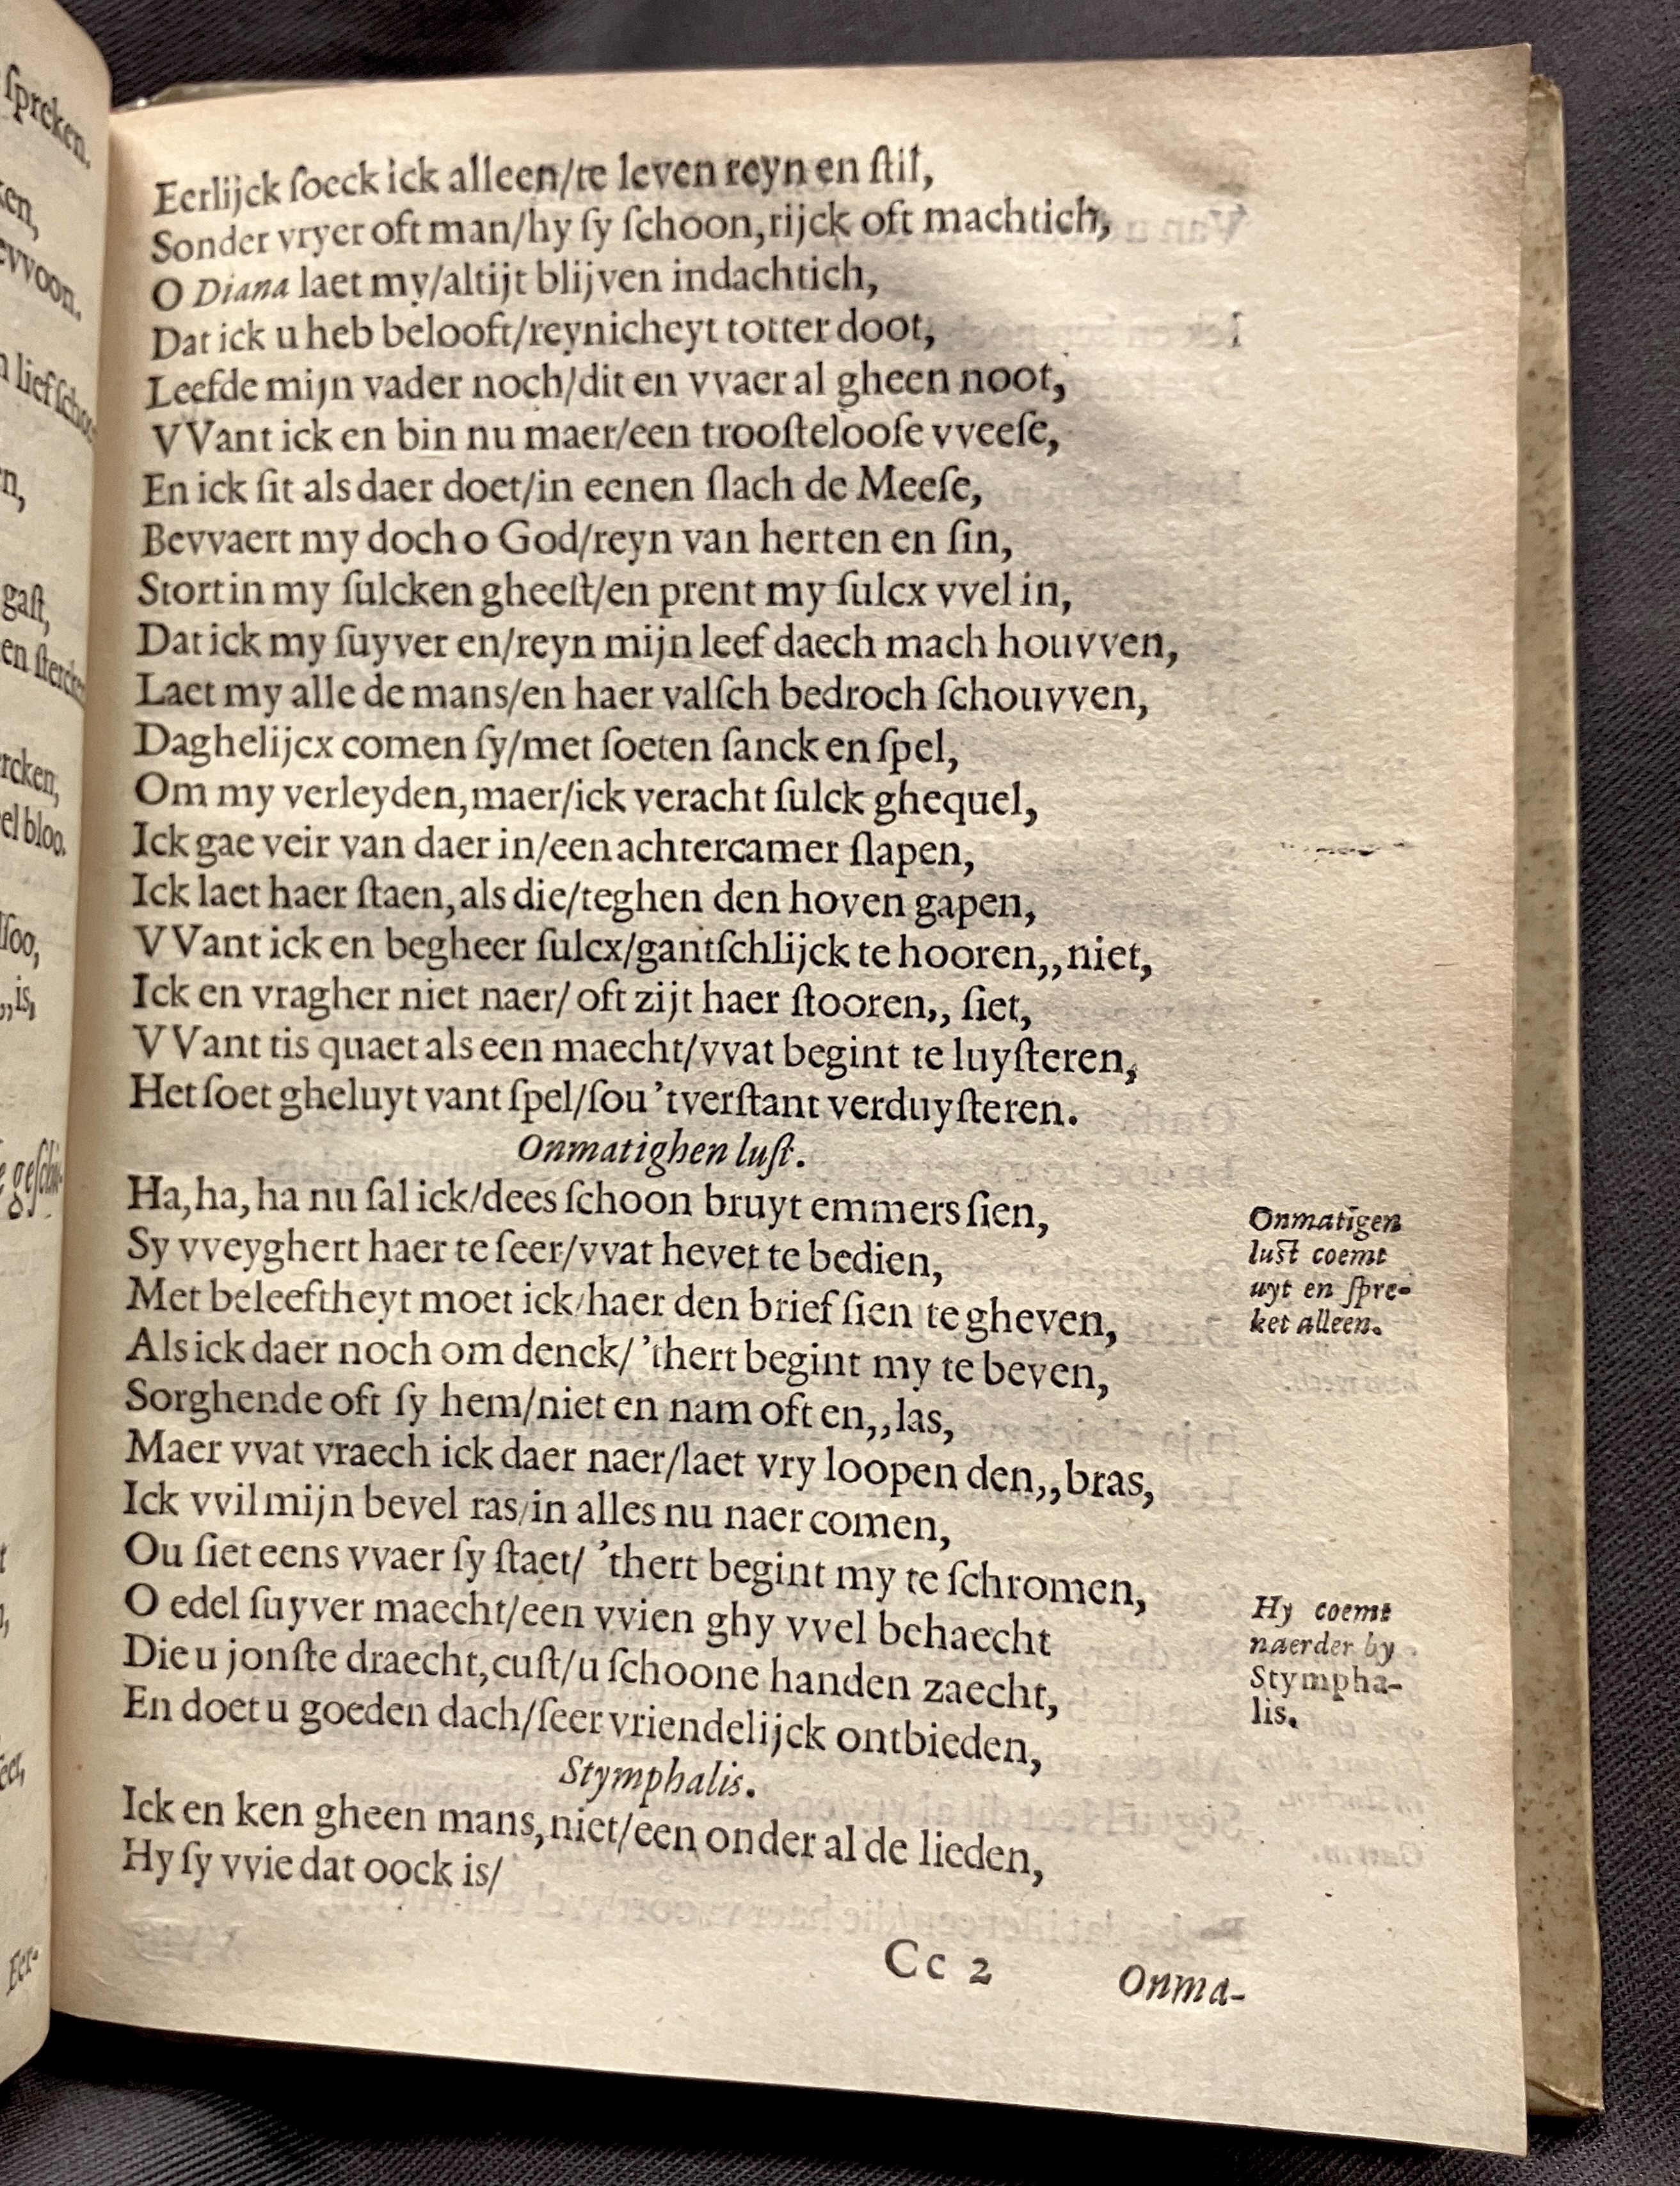 spreken.
ken,
evvoon.
n lief schoo
n,
gast,
en stercken
rcken,
el bloo.
lsoo,
,,is,
Eer-
Eerlijck ſoeck ick alleen/te leven reyn en ſtil,
Sonder vryer oft man/hy ſy ſchoon, rijck oft machtich,
O Diana laet my/altijt blijven indachtich,
Dat ick u heb belooft/reynicheyt totter doot,
Leefde mijn vader noch/dit en vvaer al gheen noot,
VVant ick en bin nu maer/een trooſtelooſe vveeſe,
En ick ſit als daer doet/in eenen ſlach de Meeſe,
Bevvaert my doch o God/reyn van herten en ſin,
Stort in my ſulcken gheeſt/en prent my ſulcx vvel in,
Dat ick my ſuyver en/reyn mijn leef daech mach houvven,
Laet my alle de mans/en haer valſch bedroch ſchouvven,
Daghelijcx comen ſy/met ſoeten ſanck en ſpel,
Om my verleyden, maer/ick veracht ſulck ghequel,
Ick gae veir van daer in/een achtercamer ſlapen,
Ick laet haer ſtaen, als die/teghen den hoven gapen,
VVant ick en begheer ſulcx/gantſchlijck te hooren,, niet,
Ick en vragher niet naer/ oft zijt haer ſtooren,, ſiet,
VVant tis quaet als een maecht/vvat begint te luyſteren,
Het ſoet gheluyt vant ſpel/ſou 'tverſtant verduyſteren.
Onmatighen luſt.
Ha, ha, ha nu ſal ick/dees ſchoon bruyt emmers ſien,
Sy vveyghert haer te ſeer/vvat hevet te bedien,
Met beleeftheyt moet ick/haer den brief ſien te gheven,
Als ick daer noch om denck/ 'thert begint my te beven,
Sorghende oft ſy hem/niet en nam oft en,, las,
Maer vvat vraech ick daer naer/laet vry loopen den,, bras,
Ick vvil mijn bevel ras/in alles nu naer comen,
Ou ſiet eens vvaer ſy ſtaet/ 'thert begint my te ſchromen,
O edel ſuyver maecht/een vvien ghy vvel behaecht
Die u jonſte draecht, cuſt/u ſchoone handen zaecht,
En doet u goeden dach/ſeer vriendelijck ontbieden,
Stymphalis.
Ick en ken gheen mans, niet/een onder al de lieden,
Hy ſy vvie dat oock is/
Onmatigen
luſt coemt
uyt en ſpre-
ket alleen.
Hy coemt
naerder by
Stympha-
lis.
Cc 2
Onma-